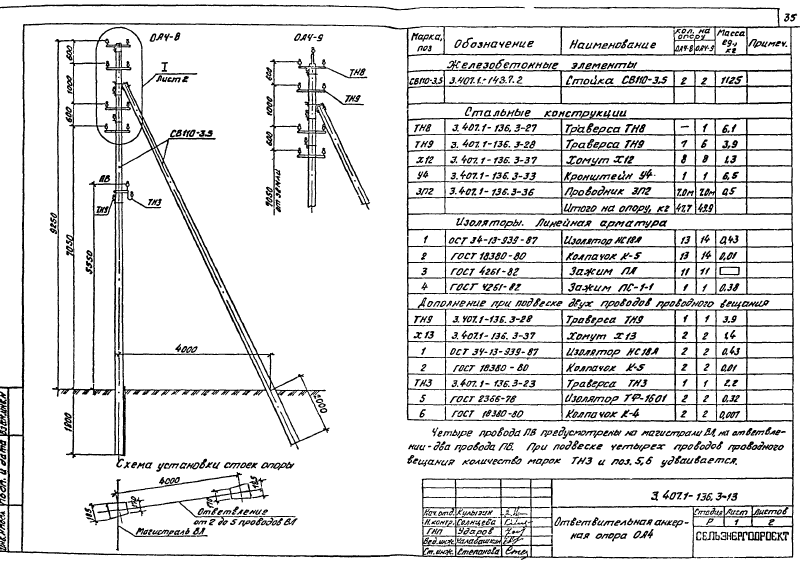 35
ОА4-8
ОА4-9
I
Лист 2
600
1000
600
СВ110-3.5
ПВ
ТН3
9250
7050
5550
4000
2000
1800
ТН8
ТН9
600
1000
600
7050
от земли
Схема установки стоек опоры
4000
185
170
Ответвление
от 2 до 5 проводов ВЛ
Магистраль ВЛ
Марка, поз Обозначение Наименование Кол. на опору ОА4-8 ОА4-9 Масса ед., кг Примеч.
Железобетонные элементы
СВ110-3.5 3.407.1-143.7.2 Стойка СВ110-3.5 2 2 1125
Стальные конструкции
ТН8 3.407.1-136.3-27 Траверса ТН8 — 1 6.1
ТН9 3.407.1-136.3-28 Траверса ТН9 7 6 3,9
Х12 3.407.1-136.3-37 Хомут Х12 8 8 1.3
У4 3.407.1-136.3-33 Кронштейн У4 1 1 6,5
ЗП2 3.407.1-136.3-36 Проводник ЗП2 7.0м 7.0м 0,5
Итого на опору, кг 47.7 49.9
Изоляторы. Линейная арматура
1 ОСТ 34-13-939-87 Изолятор НС18А 13 14 0,43
2 ГОСТ 18380-80 Колпачок К-5 13 14 0,01
3 ГОСТ 4261-82 Зажим ПА 11 11
4 ГОСТ 4261-82 Зажим ПС-1-1 1 1 0.38
Дополнение при подвеске двух проводов проводного вещания
ТН9 3.407.1-136.3-28 Траверса ТН9 1 1 3.9
Х13 3.407.1-136.3-37 Хомут Х13 2 2 1.4
1 ОСТ 34-13-939-87 Изолятор НС18А 2 2 0.43
2 ГОСТ 18380-80 Колпачок К-5 2 2 0,01
ТН3 3.407.1-136.3-23 Траверса ТН3 1 1 2.2
5 ГОСТ 2366-78 Изолятор ТФ-1601 2 2 0,32
6 ГОСТ 18380-80 Колпачок К-4 2 2 0,007
Четыре провода ПВ предусмотрены на магистрали ВЛ, на ответвле-
нии-два провода ПВ. При подвеске четырех проводов проводного
вещания количество марок ТН3 и поз. 5,6 удваивается.
3.407.1-136.3-13
Нач.отд. Кулыгин
Н.контр. Солнцева
ГИП Ударов
Вед.инж. Калабашкин
Ст.инж. Степанова
Ответвительная анкер-
ная опора ОА4
Стадия Лист Листов
Р 1 2
СЕЛЬЭНЕРГОПРОЕКТ
Инв.№ подл. Подп. и дата Взам.инв.№